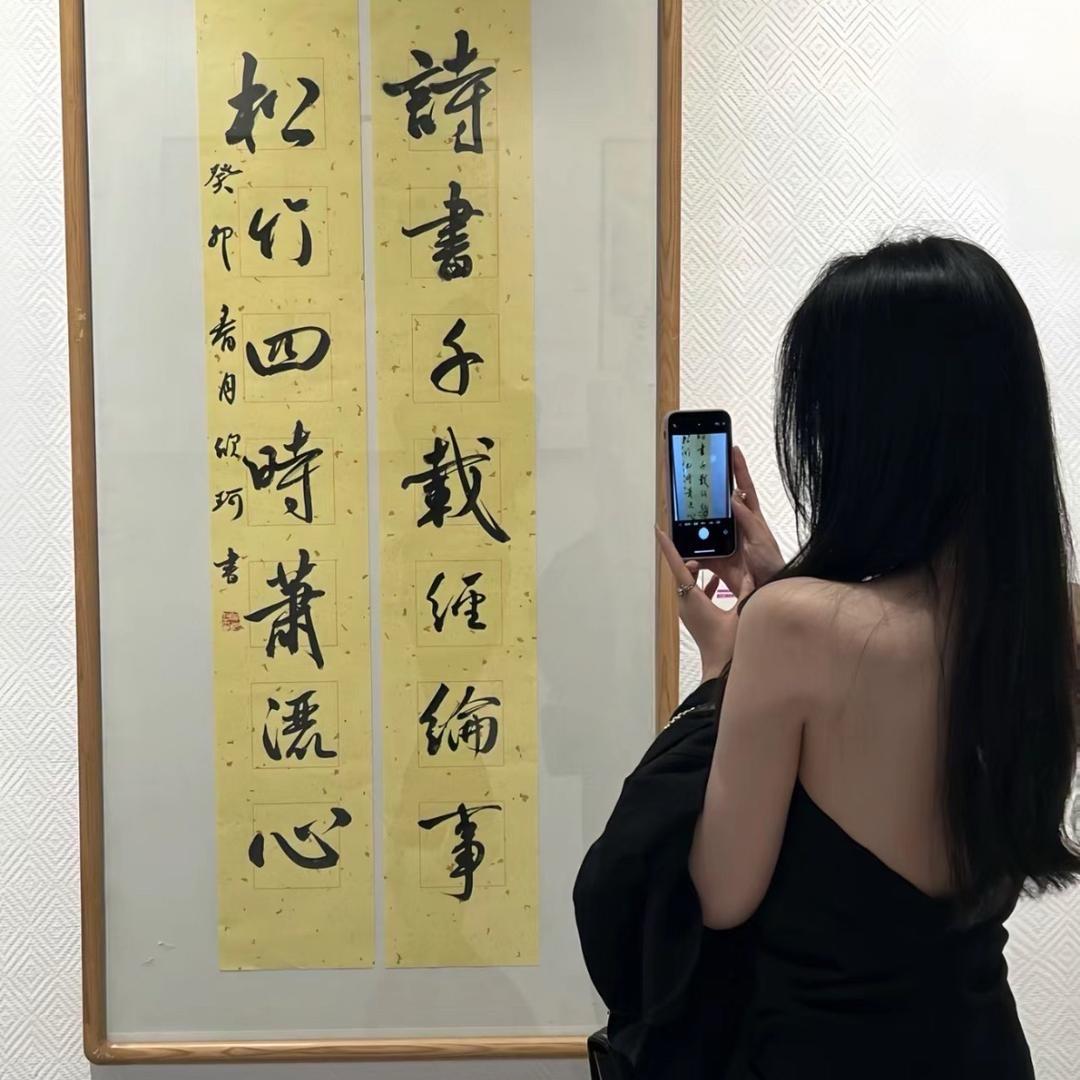 詩書千載經綸事
松竹四時蕭灑心
癸卯春月欣珂書